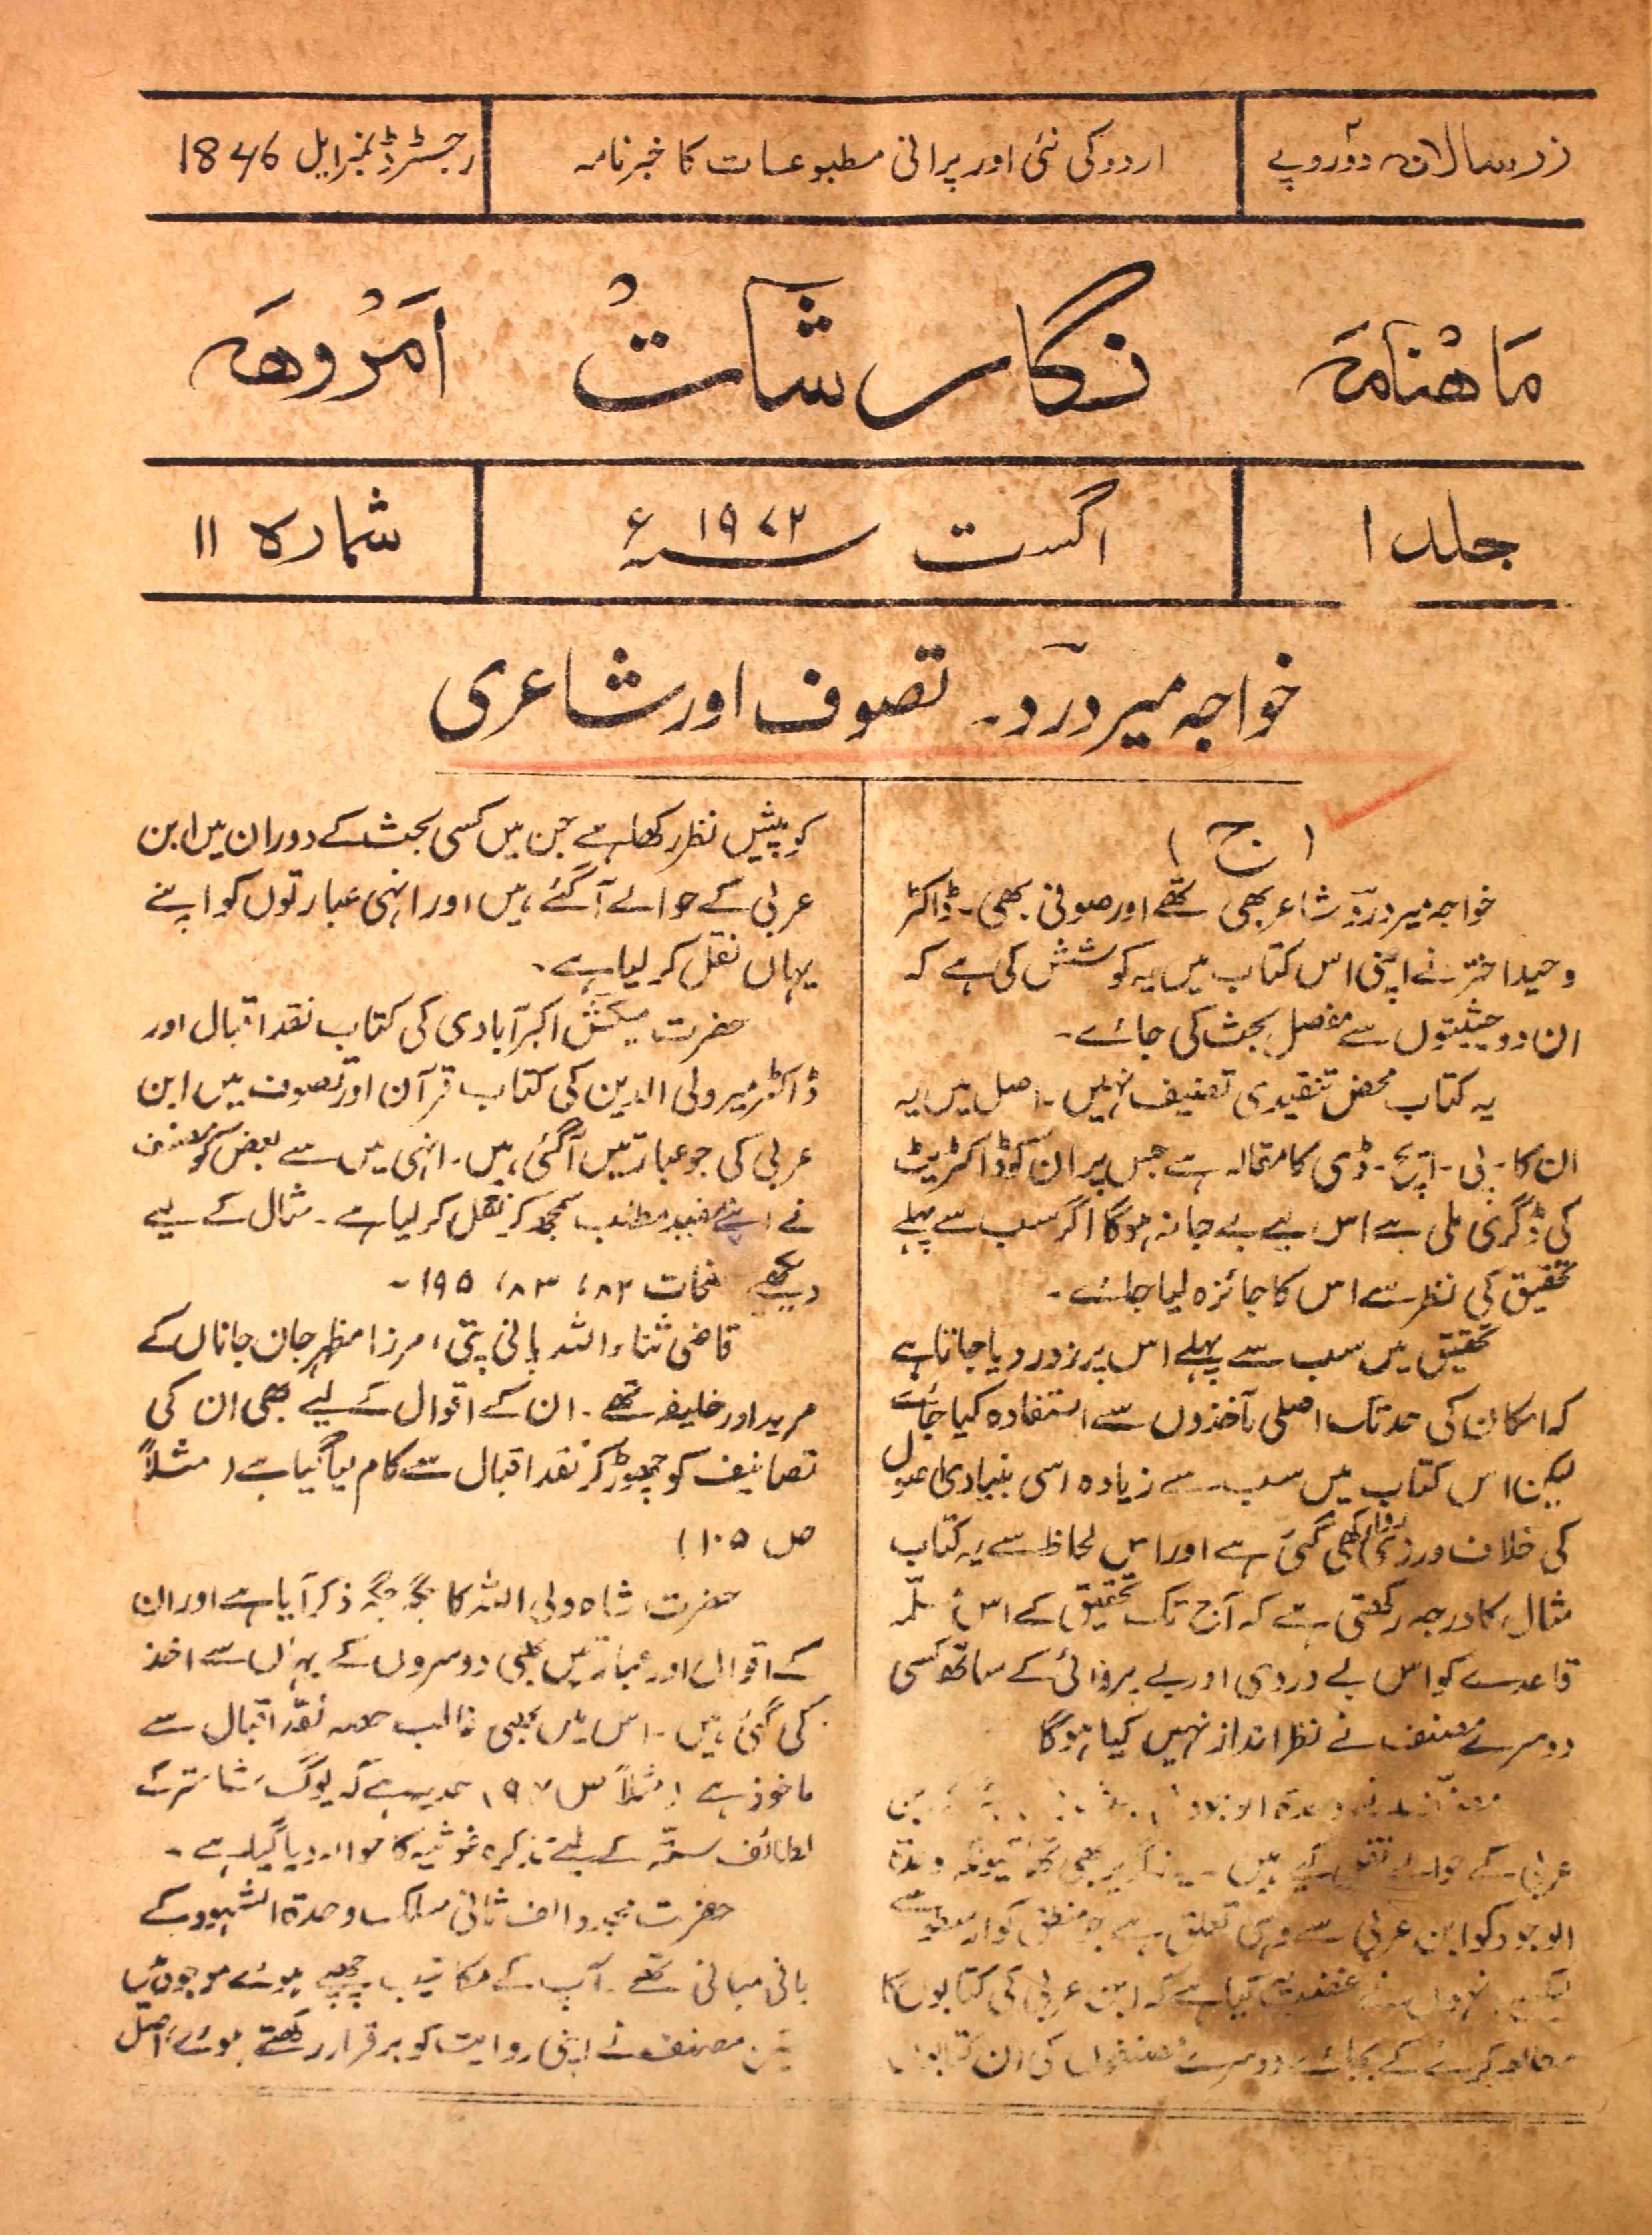 زر سالانہ دو روپے
اردو کی نئی اور پرانی مطبوعات کا خبرنامہ
رجسٹرڈ نمبر ایل 1846
ماهنامہ نگارشات امروهہ
جلد ۱
اگست ۱۹۷۲ء
شمارہ ۱۱
خواجہ میر درد۔ تصوف اور شاعری
(ج)
خواجہ میر درد شاعر بھی تھے اور صوفی بھی۔ ڈاکٹر
وحید اختر نے اپنی اس کتاب میں یہ کوشش کی ہے کہ
ان دو حیثیتوں سے مفصل بحث کی جائے۔
یہ کتاب محض تنقیدی تصنیف نہیں۔ اصل میں یہ
ان کا پی۔ ایچ۔ ڈی کا مقالہ ہے جس پر ان کو ڈاکٹریٹ
کی ڈگری ملی ہے اس لیے بے جا نہ ہوگا اگر سب سے پہلے
تحقیق کی نظر سے اس کا جائزہ لیا جائے۔
تحقیق میں سب سے پہلے اس پر زور دیا جاتا ہے
کہ امکان کی حد تک اصلی مآخذوں سے استفادہ کیا جائے
لیکن اس کتاب میں سب سے زیادہ اسی بنیادی اصول
کی خلاف ورزی روا رکھی گئی ہے اور اس لحاظ سے یہ کتاب
مثال کا درجہ رکھتی ہے کہ آج تک تحقیق کے اس مسلّمہ
قاعدے کو اس بے دردی اور بے پروائی کے ساتھ کسی
دوسرے مصنف نے نظر انداز نہیں کیا ہوگا
عربی کے حوالے نقل کیے ہیں۔ وحدۃ
الوجود کو ابن عربی سے وہی تعلق ہے جو منطق کو ارسطو سے
لیکن انہوں نے کیا ہے کہ ابن عربی کی کتابوں کا
مطالعہ کرنے کے بجائے دوسرے مصنفوں کی ان کتابوں
کو پیش نظر رکھا ہے جن میں کسی بحث کے دوران میں ابن
عربی کے حوالے آگئے ہیں اور انہی عبارتوں کو اپنے
یہاں نقل کر لیا ہے۔
حضرت میکش اکبرآبادی کی کتاب نقد اقبال اور
ڈاکٹر میر ولی الدین کی کتاب قرآن اور تصوف میں ابن
عربی کی جو عبارتیں آگئی ہیں۔ انہی میں سے بعض کو مصنف
نے اپنے مفید مطلب سمجھ کر نقل کر لیا ہے۔ مثال کے لیے
دیکھیے صفحات ۸۲، ۸۳، ۱۹۵۔
قاضی ثناء اللہ پانی پتی، مرزا مظہر جان جاناں کے
مرید اور خلیفہ تھے۔ ان کے اقوال کے لیے بھی ان کی
تصانیف کو چھوڑ کر نقد اقبال سے کام لیا گیا ہے (مثلاً
ص ۱۰۵)
حضرت شاہ ولی اللہ کا جگہ جگہ ذکر آیا ہے اور ان
کے اقوال اور عبارتیں بھی دوسروں کے یہاں سے اخذ
کی گئی ہیں۔ اس میں بھی غالب حصہ نقد اقبال سے
ماخوذ ہے (مثلاً ص ۱۹۷) حد یہ ہے کہ یوگ شاستر کے
لطائف ستّہ کے لیے تذکرہ غوثیہ کا حوالہ دیا گیا ہے۔
حضرت مجدد الف ثانی مسلک وحدۃ الشہود کے
بانی مبانی تھے۔ آپ کے مکاتیب چھپے ہوئے موجود ہیں
مصنف نے اپنی روایت کو برقرار رکھتے ہوئے اصل